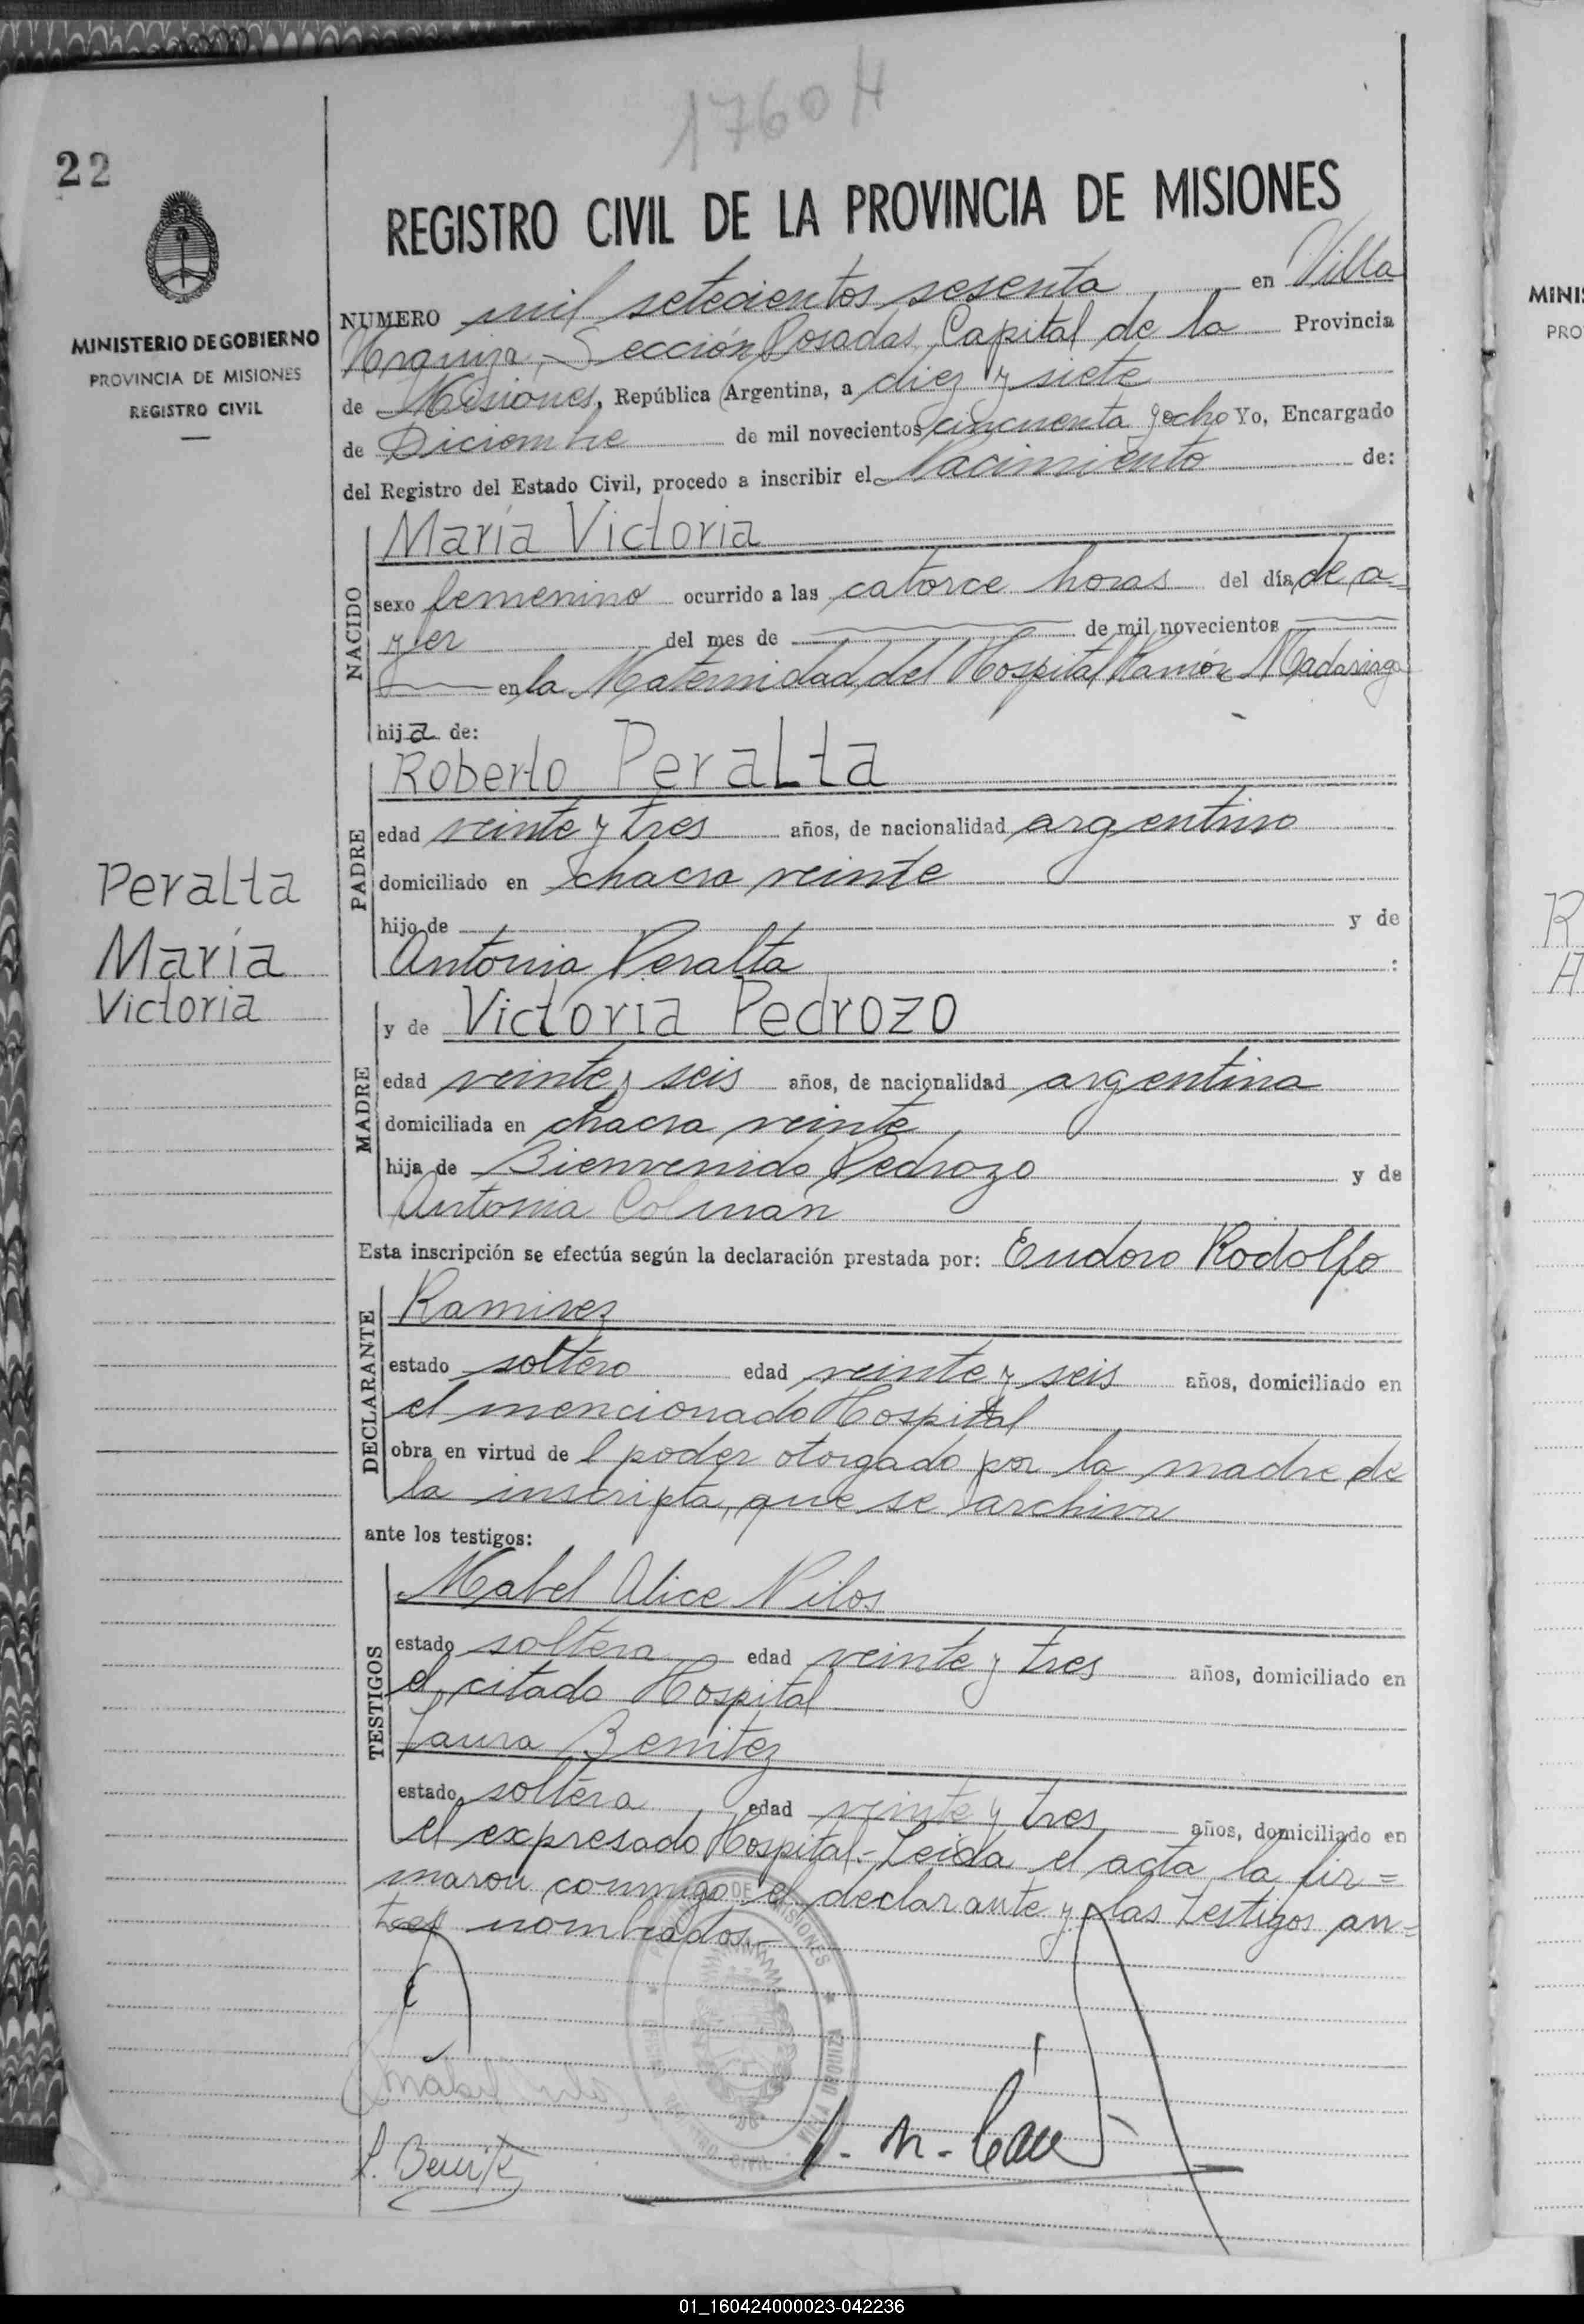 1760 H
22
REGISTRO CIVIL DE LA PROVINCIA DE MISIONES
MINISTERIO DE GOBIERNO
PROVINCIA DE MISIONES
REGISTRO CIVIL
NUMERO mil setecientos sesenta en Villa
Urquiza, Sección Posadas, Capital de la Provincia
de Misiones, República Argentina, a diez y siete
de Diciembre de mil novecientos cincuenta y ocho Yo, Encargado
del Registro del Estado Civil, procedo a inscribir el Nacimiento de:
NACIDO
María Victoria
sexo femenino ocurrido a las catorce horas del día de a=
yer del mes de de mil novecientos
en la Maternidad del Hospital Ramón Madariaga
hija de:
PADRE
Roberto Peralta
edad veinte y tres años, de nacionalidad argentino
domiciliado en chacra veinte
hijo de y de
Antonia Peralta :
Peralta
María
Victoria
MADRE
y de Victoria Pedrozo
edad veinte y seis años, de nacionalidad argentina
domiciliada en chacra veinte
hija de Bienvenido Pedrozo y de
Antonia Colman
Esta inscripción se efectúa según la declaración prestada por: Eudoro Rodolfo
DECLARANTE
Ramirez
estado soltero edad veinte y seis años, domiciliado en
el mencionado Hospital
obra en virtud de l poder otorgado por la madre de
la inscripta, que se archiva
ante los testigos:
TESTIGOS
Mabel Alice Nilos
estado soltera edad veinte y tres años, domiciliado en
el citado Hospital
Laura Benitez
estado soltera edad veinte y tres años, domiciliado en
el expresado Hospital.- Leida el acta, la fir=
maron conmigo el declarante y las testigos an=
tes nombrados.-
DE MISIONES
VILLA URQUIZA
CIVIL
L. Benitez
MINIS
PRO
R
H
01_160424000023-042236